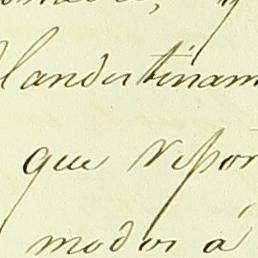 clandestinam
que repor
modos á